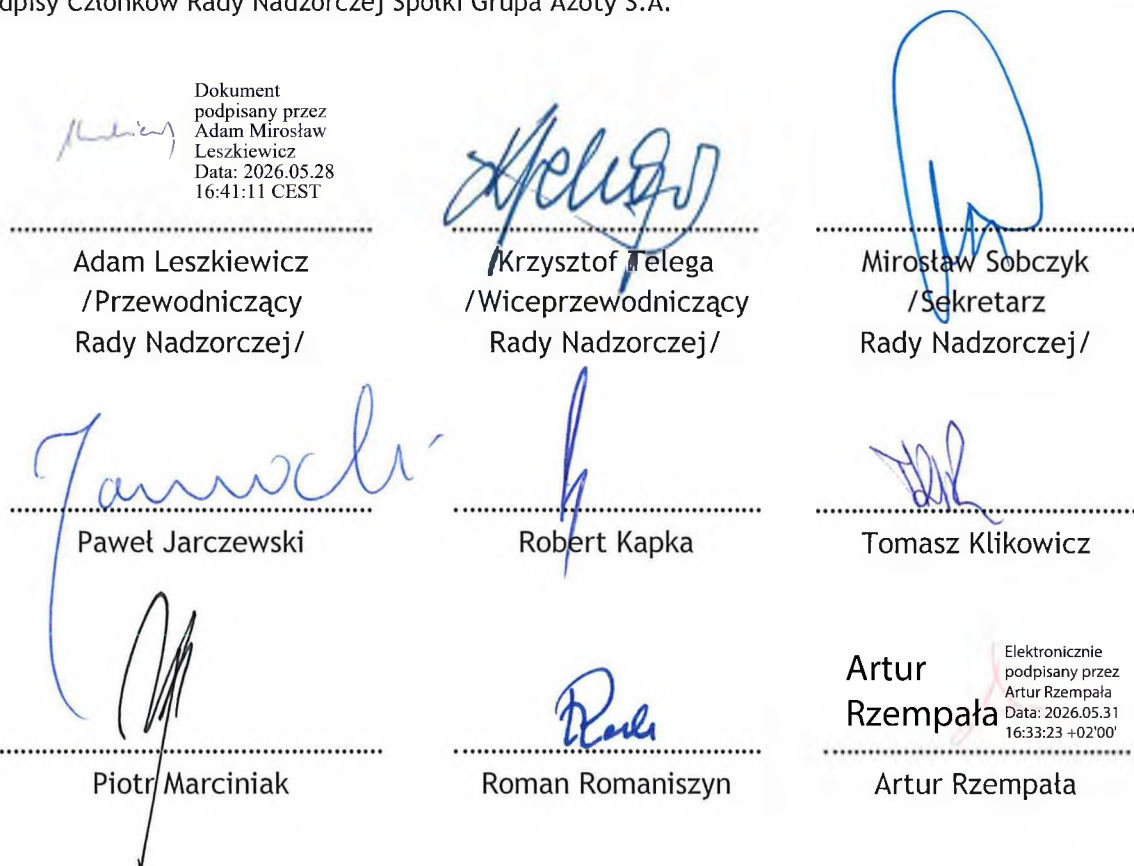 dpisy Członków Rady Nadzorczej Spółki Grupa Azoty S.A.
Dokument
podpisany przez
Adam Mirosław
Leszkiewicz
Data: 2026.05.28
16:41:11 CEST
Adam Leszkiewicz
/Przewodniczący
Rady Nadzorczej/
/Krzysztof Telega
/Wiceprzewodniczący
Rady Nadzorczej/
Mirosław Sobczyk
/Sekretarz
Rady Nadzorczej/
Paweł Jarczewski
Robert Kapka
Tomasz Klikowicz
Piotr Marciniak
Roman Romaniszyn
Artur
Rzempała
Elektronicznie
podpisany przez
Artur Rzempała
Data: 2026.05.31
16:33:23 +02'00'
Artur Rzempała